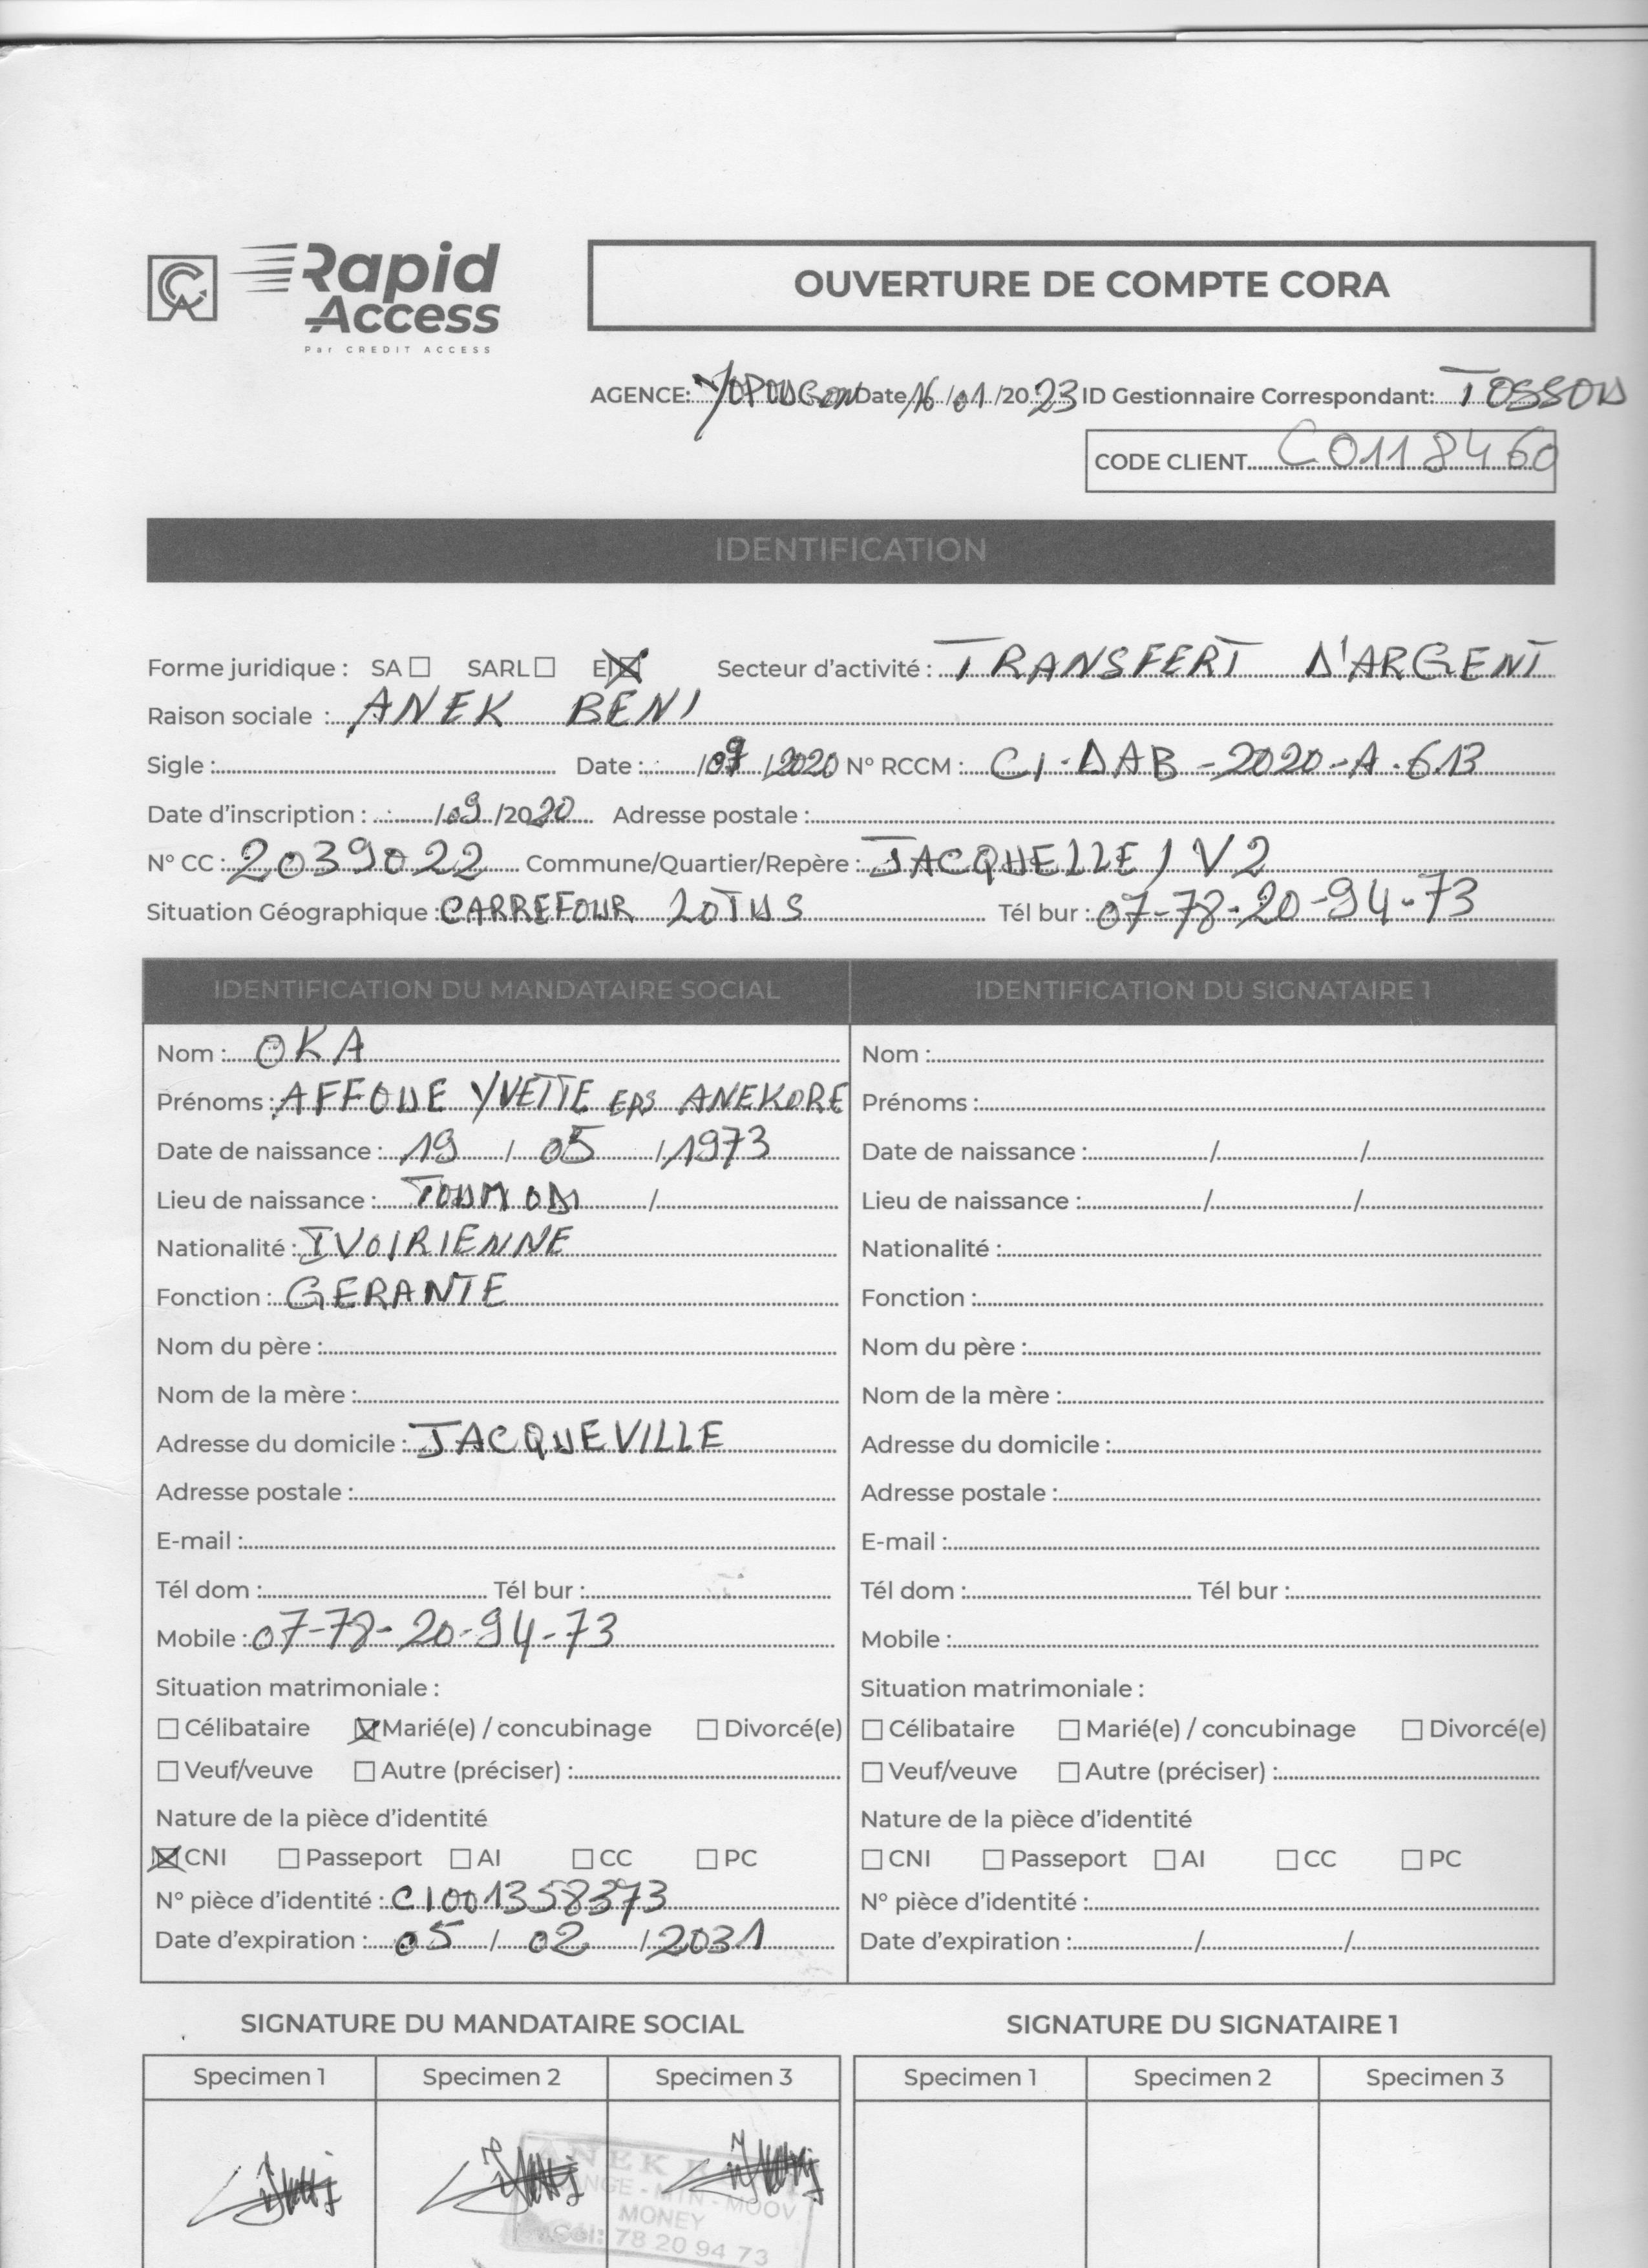 CA Rapid Access
Par CREDIT ACCESS
OUVERTURE DE COMPTE CORA
AGENCE: YOPOUGON Date 16/01/2023 ID Gestionnaire Correspondant: TOSSOU
CODE CLIENT C0118460
IDENTIFICATION
Forme juridique : SA ☐ SARL ☐ EI ☒ Secteur d'activité : TRANSFERT D'ARGENT
Raison sociale : ANEK BENI
Sigle : Date : /09/2020 N° RCCM : CI-DAB-2020-A-613
Date d'inscription : /09/2020 Adresse postale :
N° CC : 2039022 Commune/Quartier/Repère : JACQUELLE/V2
Situation Géographique : CARREFOUR LOTUS Tél bur : 07-78-20-94-73
IDENTIFICATION DU MANDATAIRE SOCIAL
Nom : OKA
Prénoms : AFFOUE YVETTE EPS ANEKORE
Date de naissance : 19 / 05 / 1973
Lieu de naissance : TOUMODI /
Nationalité : IVOIRIENNE
Fonction : GERANTE
Nom du père :
Nom de la mère :
Adresse du domicile : JACQUEVILLE
Adresse postale :
E-mail :
Tél dom : Tél bur :
Mobile : 07-78-20-94-73
Situation matrimoniale :
☐ Célibataire ☒ Marié(e) / concubinage ☐ Divorcé(e)
☐ Veuf/veuve ☐ Autre (préciser) :
Nature de la pièce d'identité
☒ CNI ☐ Passeport ☐ AI ☐ CC ☐ PC
N° pièce d'identité : CI001358373
Date d'expiration : 05 / 02 / 2031
IDENTIFICATION DU SIGNATAIRE 1
Nom :
Prénoms :
Date de naissance : / /
Lieu de naissance : / /
Nationalité :
Fonction :
Nom du père :
Nom de la mère :
Adresse du domicile :
Adresse postale :
E-mail :
Tél dom : Tél bur :
Mobile :
Situation matrimoniale :
☐ Célibataire ☐ Marié(e) / concubinage ☐ Divorcé(e)
☐ Veuf/veuve ☐ Autre (préciser) :
Nature de la pièce d'identité
☐ CNI ☐ Passeport ☐ AI ☐ CC ☐ PC
N° pièce d'identité :
Date d'expiration : / /
SIGNATURE DU MANDATAIRE SOCIAL
Specimen 1 Specimen 2 Specimen 3
ANEK
- MTN - MOOV
MONEY
78 20 94 73
SIGNATURE DU SIGNATAIRE 1
Specimen 1 Specimen 2 Specimen 3